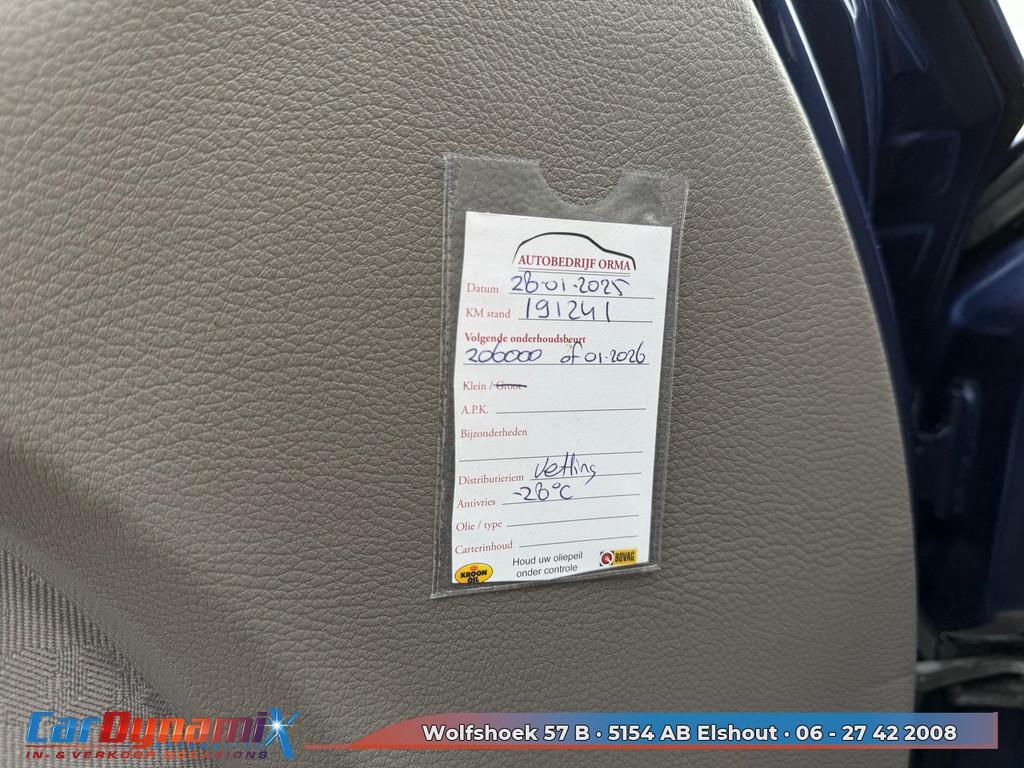 AUTOBEDRIJF ORMA
Datum 28-01-2025
KM stand 191241
Volgende onderhoudsbeurt
206000 of 01-2026
Klein / Groot
A.P.K.
Bijzonderheden
Distributieriem ketting
Antivries -28°C
Olie / type
Carterinhoud
Houd uw oliepeil
onder controle
KROON
OIL
BOVAG
CarDynamiX
IN- & VERKOOP OCCASIONS
Wolfshoek 57 B • 5154 AB Elshout • 06 - 27 42 2008